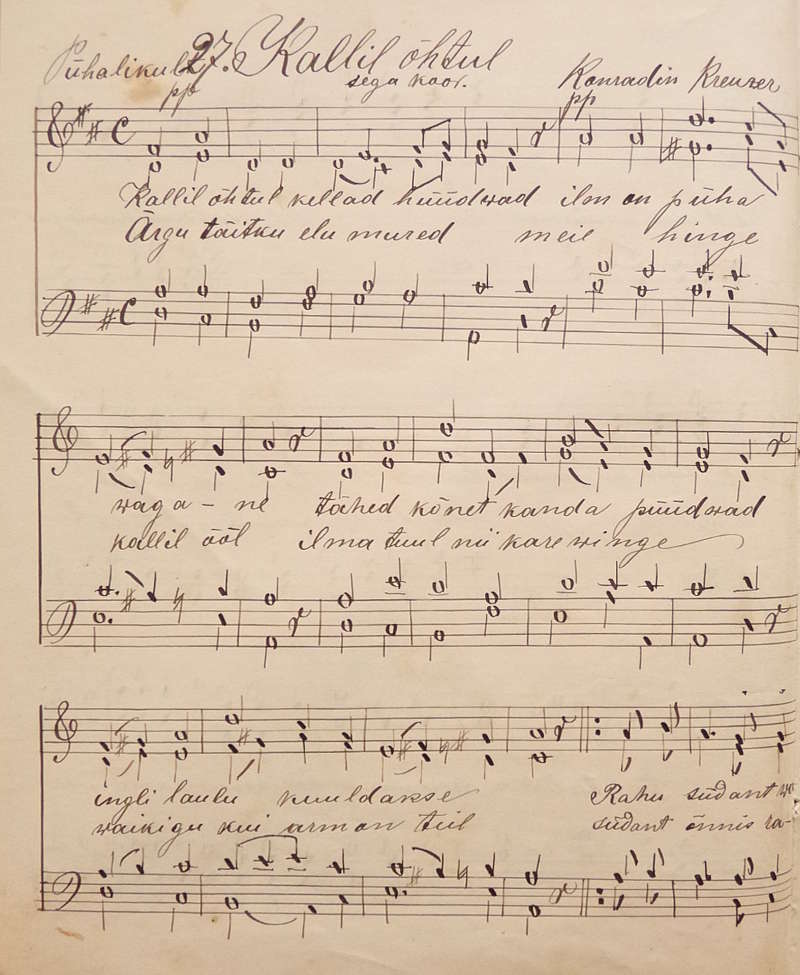 Pühalikult 27. Kallil õhtul
sega koor. Konradin Kreuzer
pp pp
Kallil õhtul kellad hüüdwad ilm on püha
Ärgu täitku elu mured meie hinge
waga - ne tähed kõnet kanda püüdwad
kallil ööl ilma tuul nii kare winge
ingli laulu kuuldakse Rahu südant
waikigu kui arm on teil südant õnnis ra-